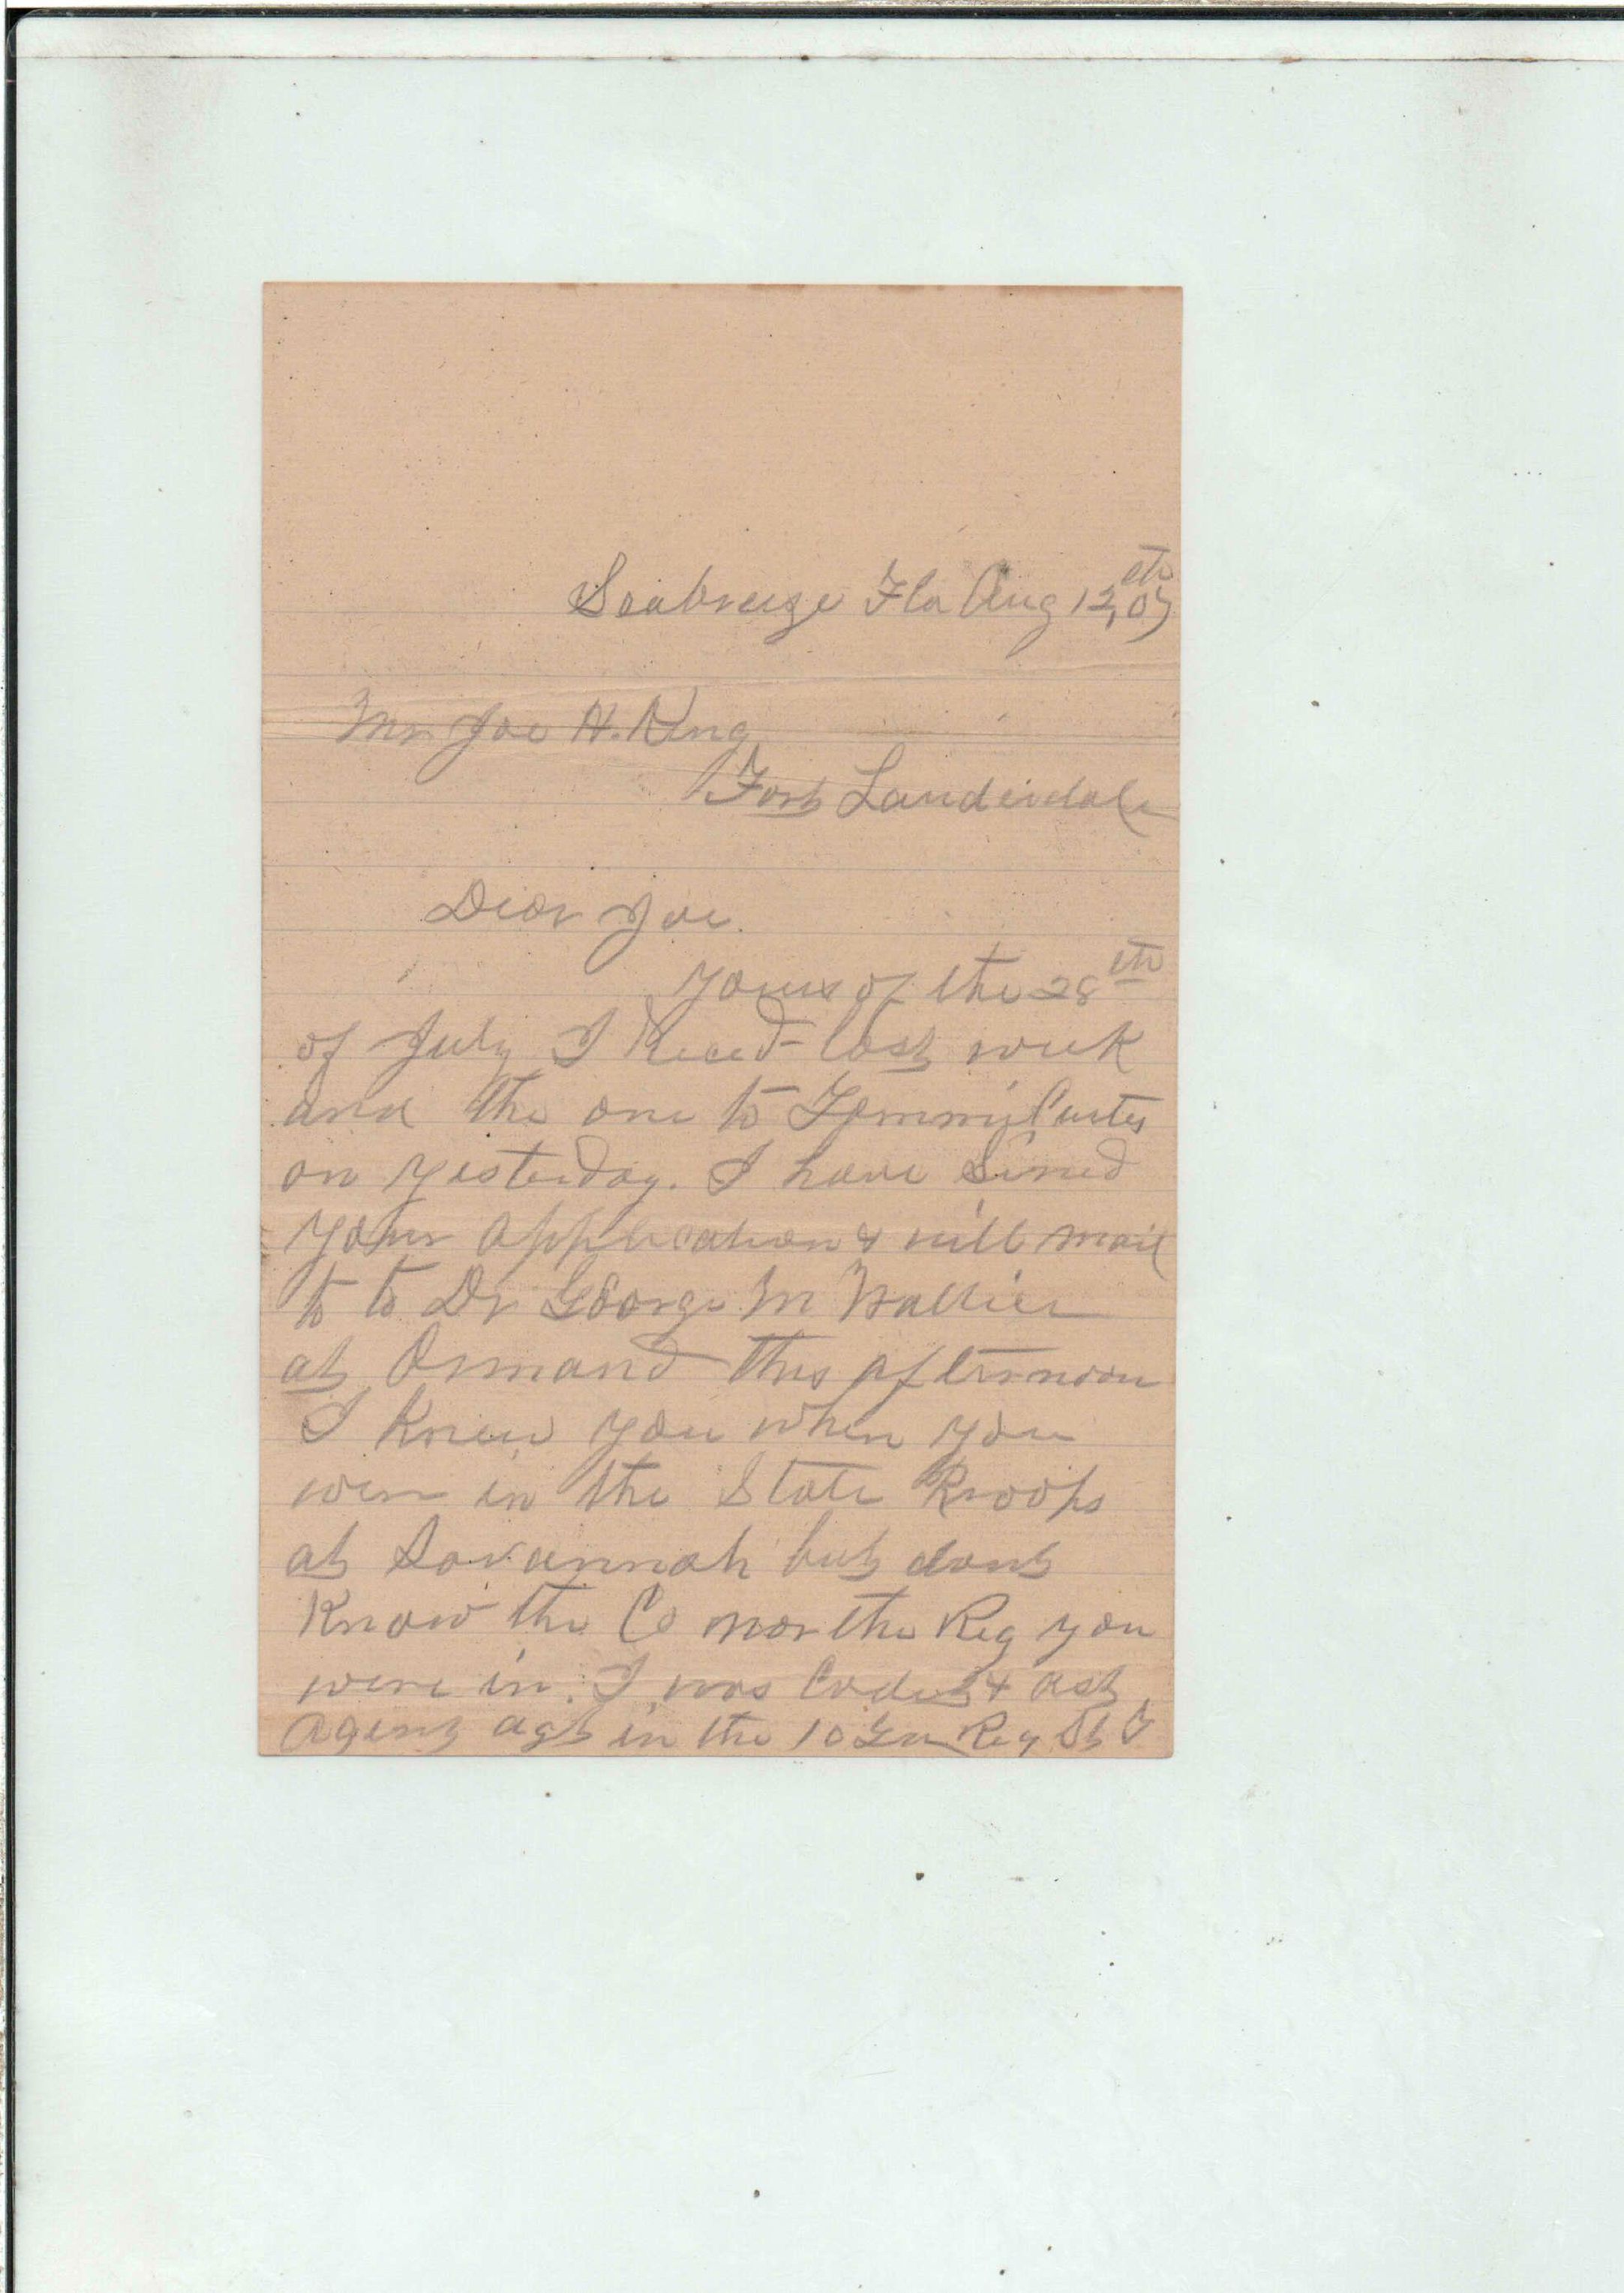 Seabreeze Fla Aug 12th, 07
Mr Joe H. King
Fort Lauderdale
Dear Joe.
Yours of the 28th
of July I Recd last week
and the one to Tommy Curtes
on yesterday. I have Sined
your application & will mail
to to Dr George M Wallice
at Ormand this afternoon
I Knew you when you
were in the State Troops
at Savannah but dont
Know the Co nor the Reg you
were in. I was Cadet & ast
agent agt in the 10 Ga Reg St T